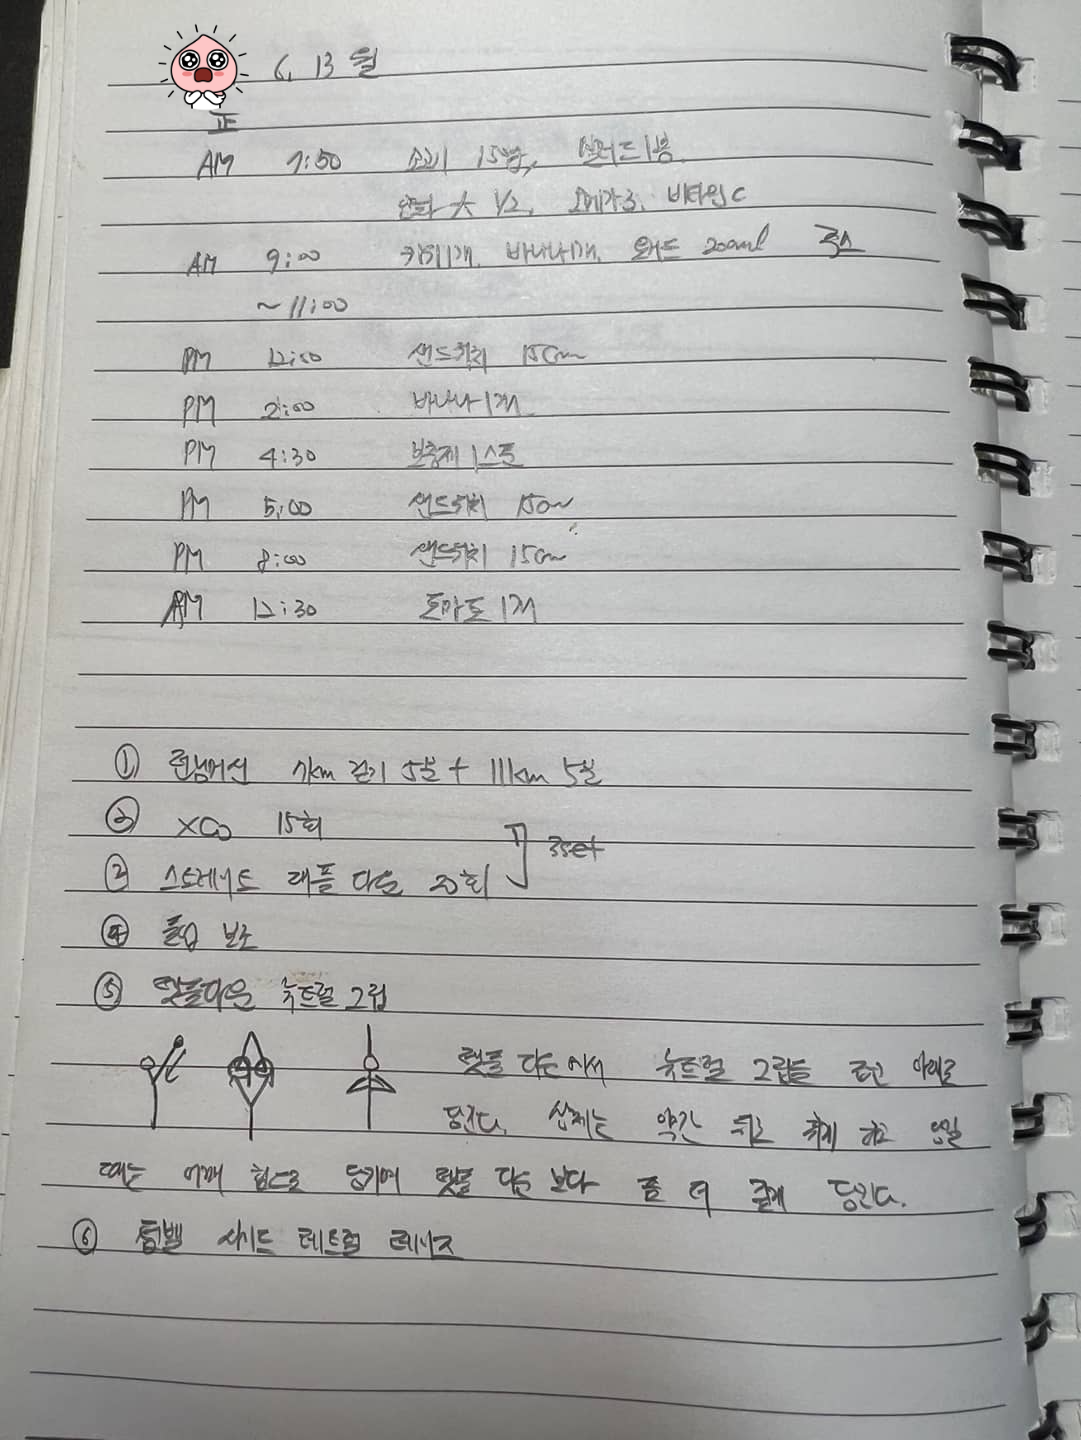 6. 13 월
正
AM 7:50 소고기 15g, 샐러드 1봉.
大 1/2, 오메가3, 비타민 C
AM 9:00 키위 1개, 바나나 1개, 200ml 쥬스
~ 11:00
PM 12:00 샌드위치 15cm
PM 2:00 바나나 1개
PM 4:30 보충제 1스푼
PM 5:00 샌드위치 15cm
PM 8:00 샌드위치 15cm
AM 12:30 토마토 1개
① 런닝머신 7km 걷기 5분 + 11km 5분
② XCO 15회
③ 스트레이트 래플 다운 20회 ] 3set
④ 풀업 보조
⑤ 랫풀다운 뉴트럴 그립
랫풀 다운에서 뉴트럴 그립을 아래로
당긴다. 상체는 약간 뒤로
때는 어깨 힘으로 당기며 랫풀 다운 보다 좀 더 당긴다.
⑥ 덤벨 사이드 레트럴 레이즈